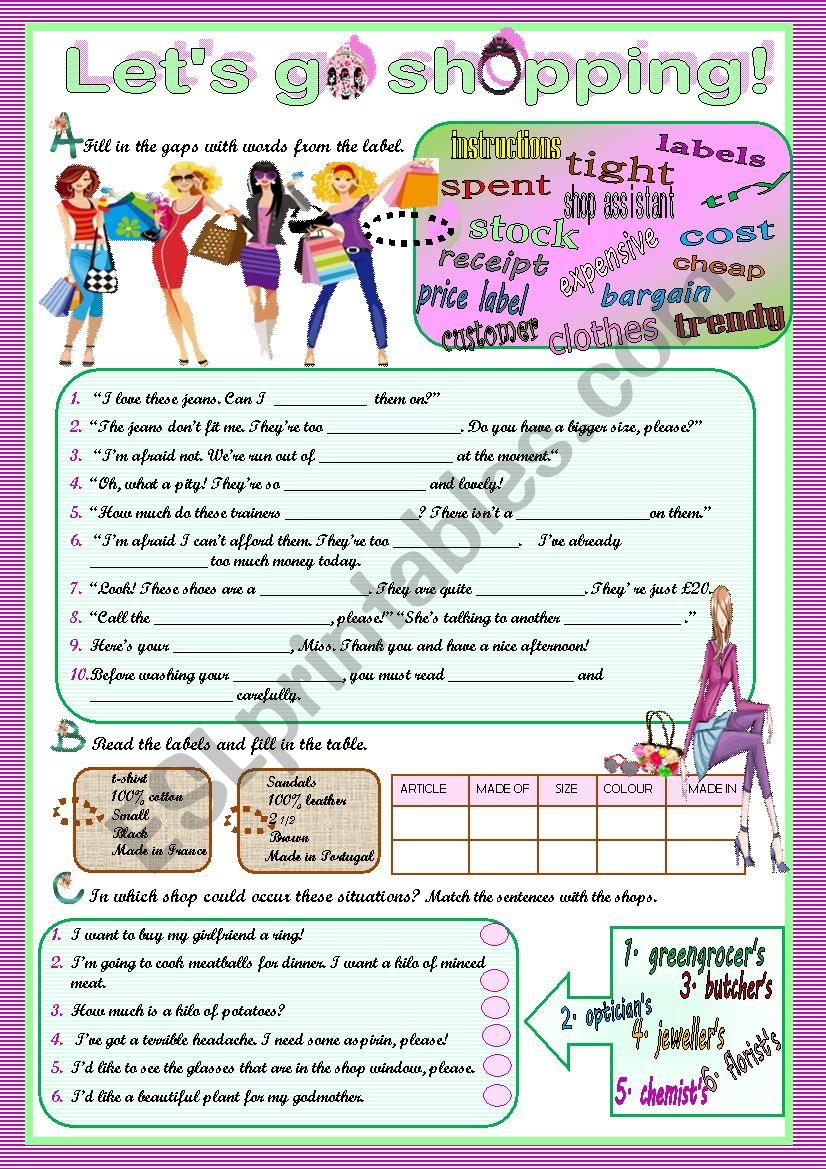 Let's go shopping!
A Fill in the gaps with words from the label.
instructions
labels
tight
spent
try
shop assistant
stock
cost
expensive
receipt
cheap
price label
bargain
customer
clothes
trendy
1. “I love these jeans. Can I ___________ them on?”
2. “The jeans don't fit me. They're too ________________. Do you have a bigger size, please?”
3. “I'm afraid not. We're run out of ________________ at the moment.“
4. “Oh, what a pity! They're so _________________ and lovely!
5. “How much do these trainers ________________? There isn't a ________________on them.”
6. “I'm afraid I can't afford them. They're too _______________. I've already
______________ too much money today.
7. “Look! These shoes are a _____________. They are quite _____________. They' re just £20.
8. “Call the _____________________, please!” “She's talking to another ______________ .”
9. Here's your ______________, Miss. Thank you and have a nice afternoon!
10.Before washing your _____________, you must read _______________ and
_________________ carefully.
B Read the labels and fill in the table.
t-shirt
100% cotton
Small
Black
Made in France
Sandals
100% leather
2 1/2
Brown
Made in Portugal
ARTICLE MADE OF SIZE COLOUR MADE IN
C In which shop could occur these situations? Match the sentences with the shops.
1. I want to buy my girlfriend a ring!
2. I'm going to cook meatballs for dinner. I want a kilo of minced
meat.
3. How much is a kilo of potatoes?
4. I've got a terrible headache. I need some aspirin, please!
5. I'd like to see the glasses that are in the shop window, please.
6. I'd like a beautiful plant for my godmother.
1. greengrocer's
3. butcher's
2. optician's
4. jeweller's
6. florist's
5. chemist's
ESLprintables.com